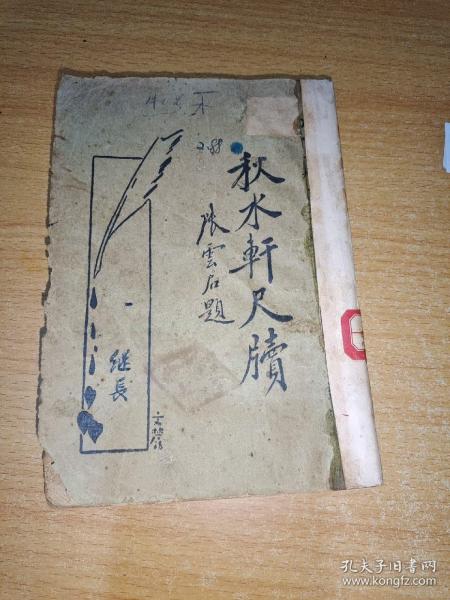 秋水軒尺牘
張雲石題
继長
孔夫子旧书网
www.kongfz.com